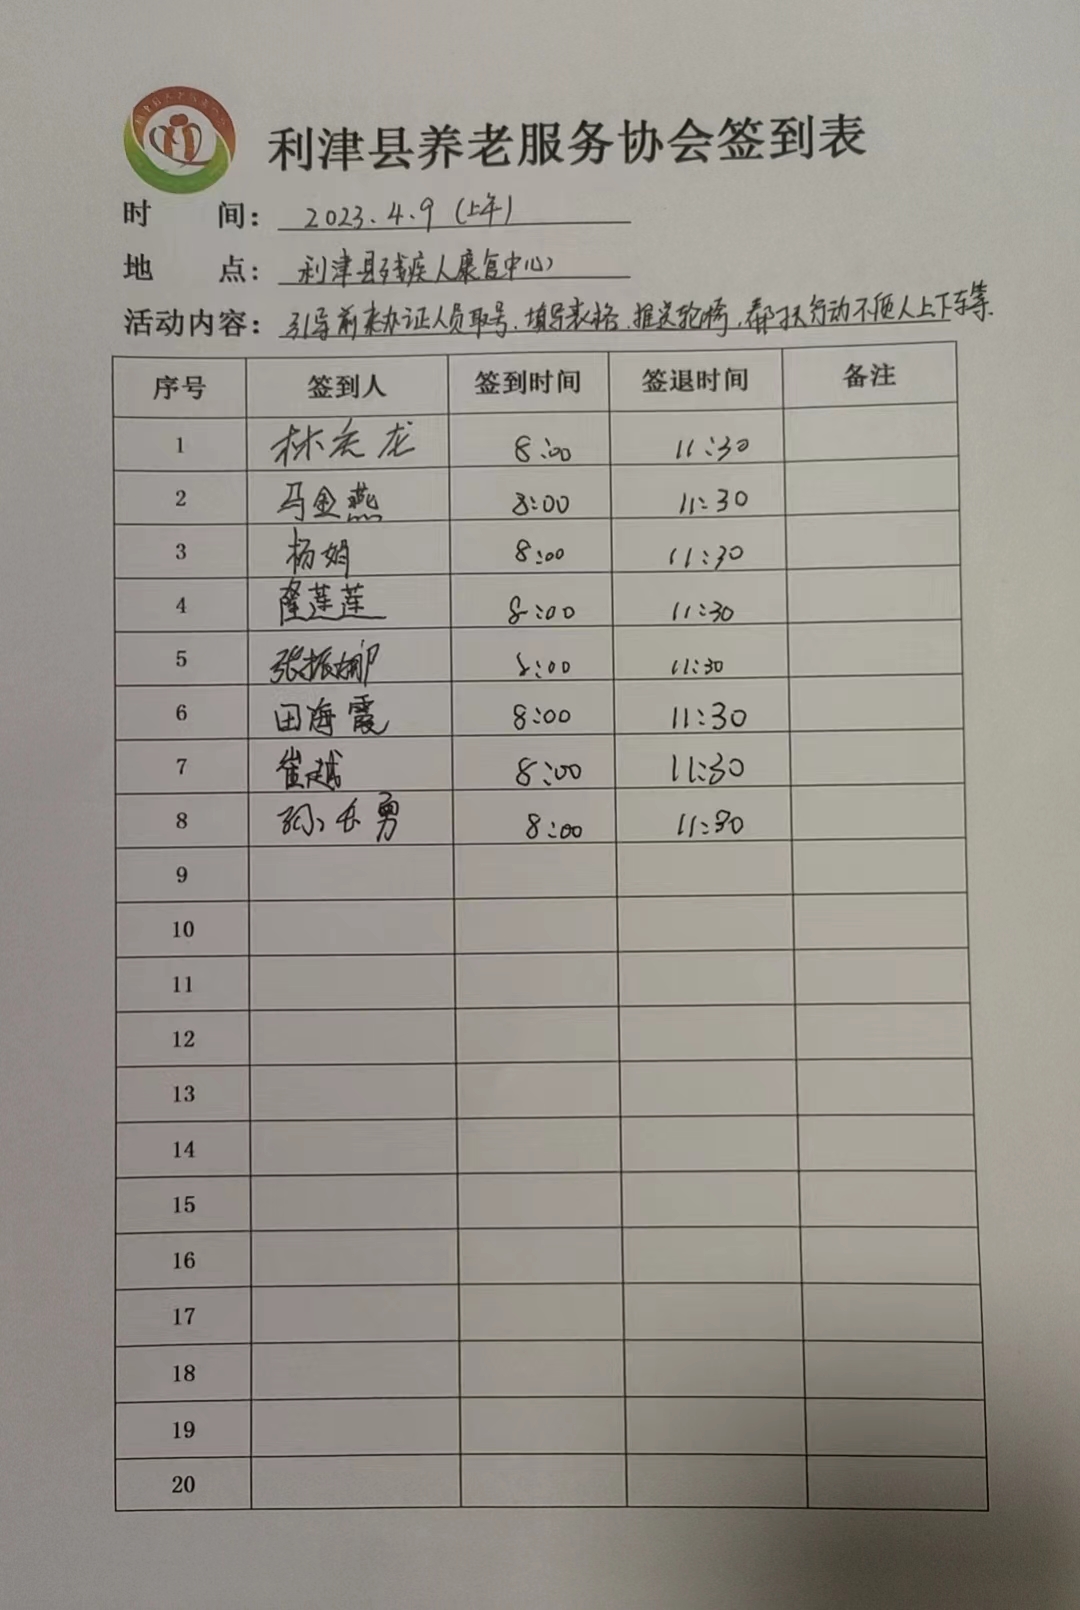 利津县养老服务协会签到表
时 间： 2023.4.9（上午）
地 点： 利津县残疾人康复中心
活动内容： 引导前来办证人员取号、填写表格、推送轮椅、帮扶行动不便人上下车等.
序号 签到人 签到时间 签退时间 备注
1 林 龙 8:00 11:30
2 马金燕 8:00 11:30
3 杨娟 8:00 11:30
4 隆莲莲 8:00 11:30
5 张振娜 8:00 11:30
6 田海霞 8:00 11:30
7 崔越 8:00 11:30
8 孙长勇 8:00 11:30
9
10
11
12
13
14
15
16
17
18
19
20